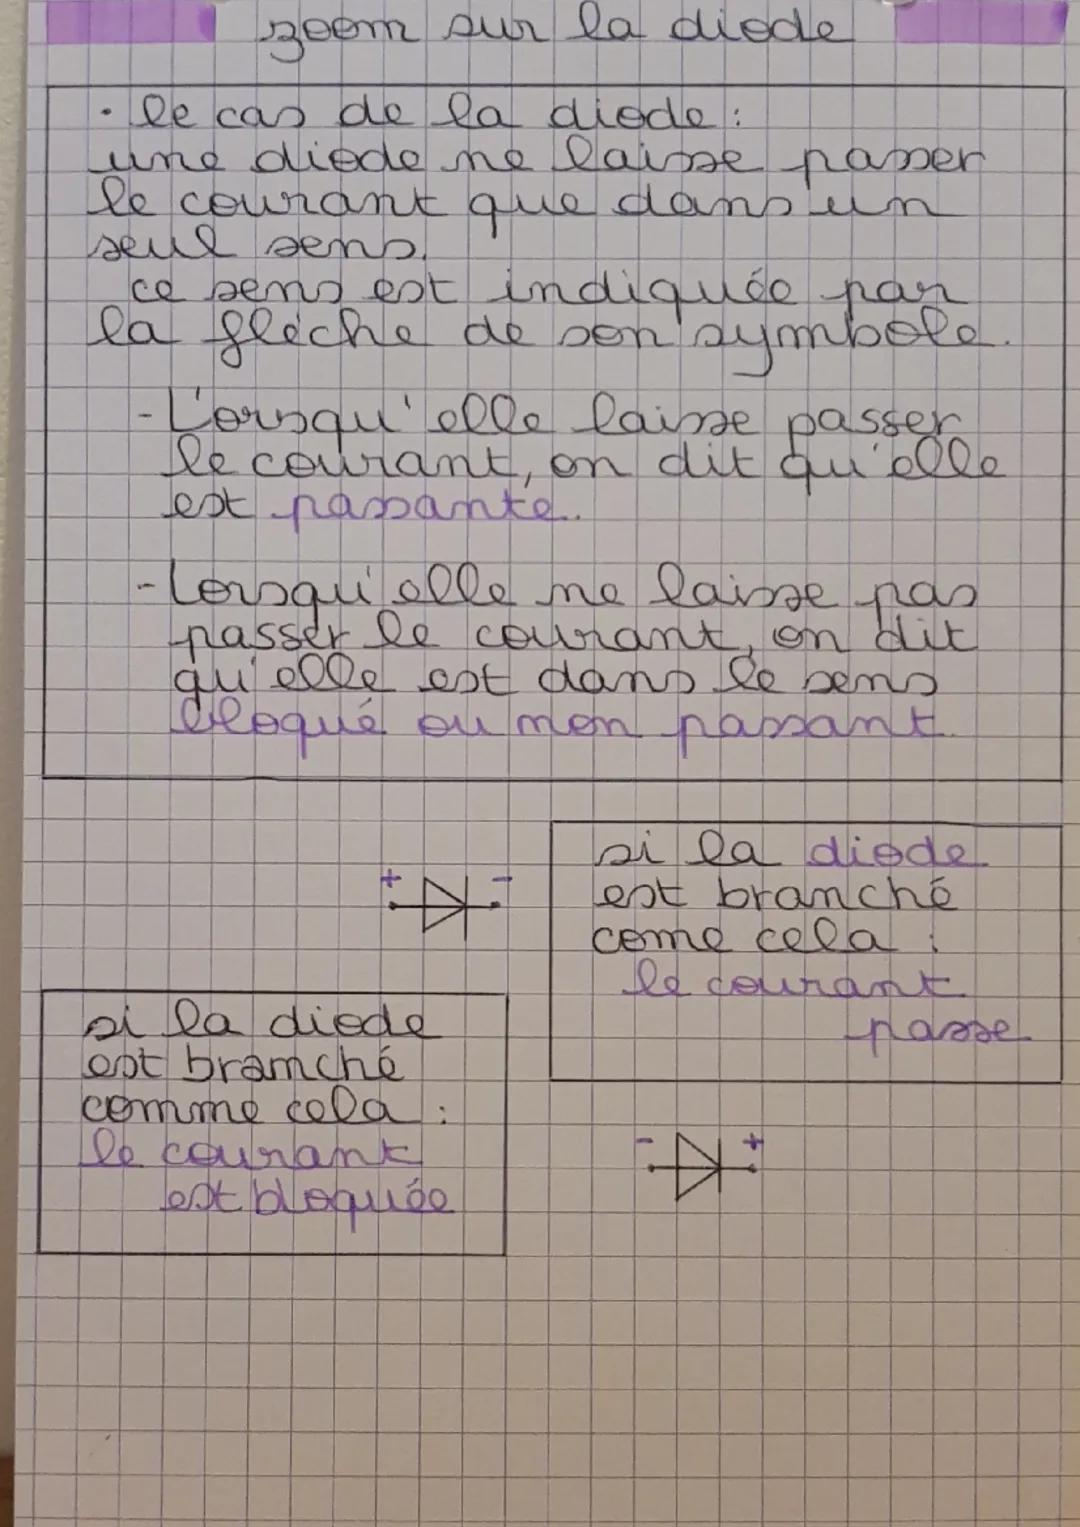 zoom sur la diode
• le cas de la diode :
une diode ne laisse passer
le courant que dans un
seul sens.
ce sens est indiquée par
la flèche de son symbole.
- Lorsqu'elle laisse passer
le courant, on dit qu'elle
est passante.
- Lorsqu'elle ne laisse pas
passer le courant, on dit
qu'elle est dans le sens
bloqué ou non passant.
+ -
si la diode
est branché
come cela :
le courant
passe
si la diode
est branché
comme cela :
le courant
est bloquée
- +